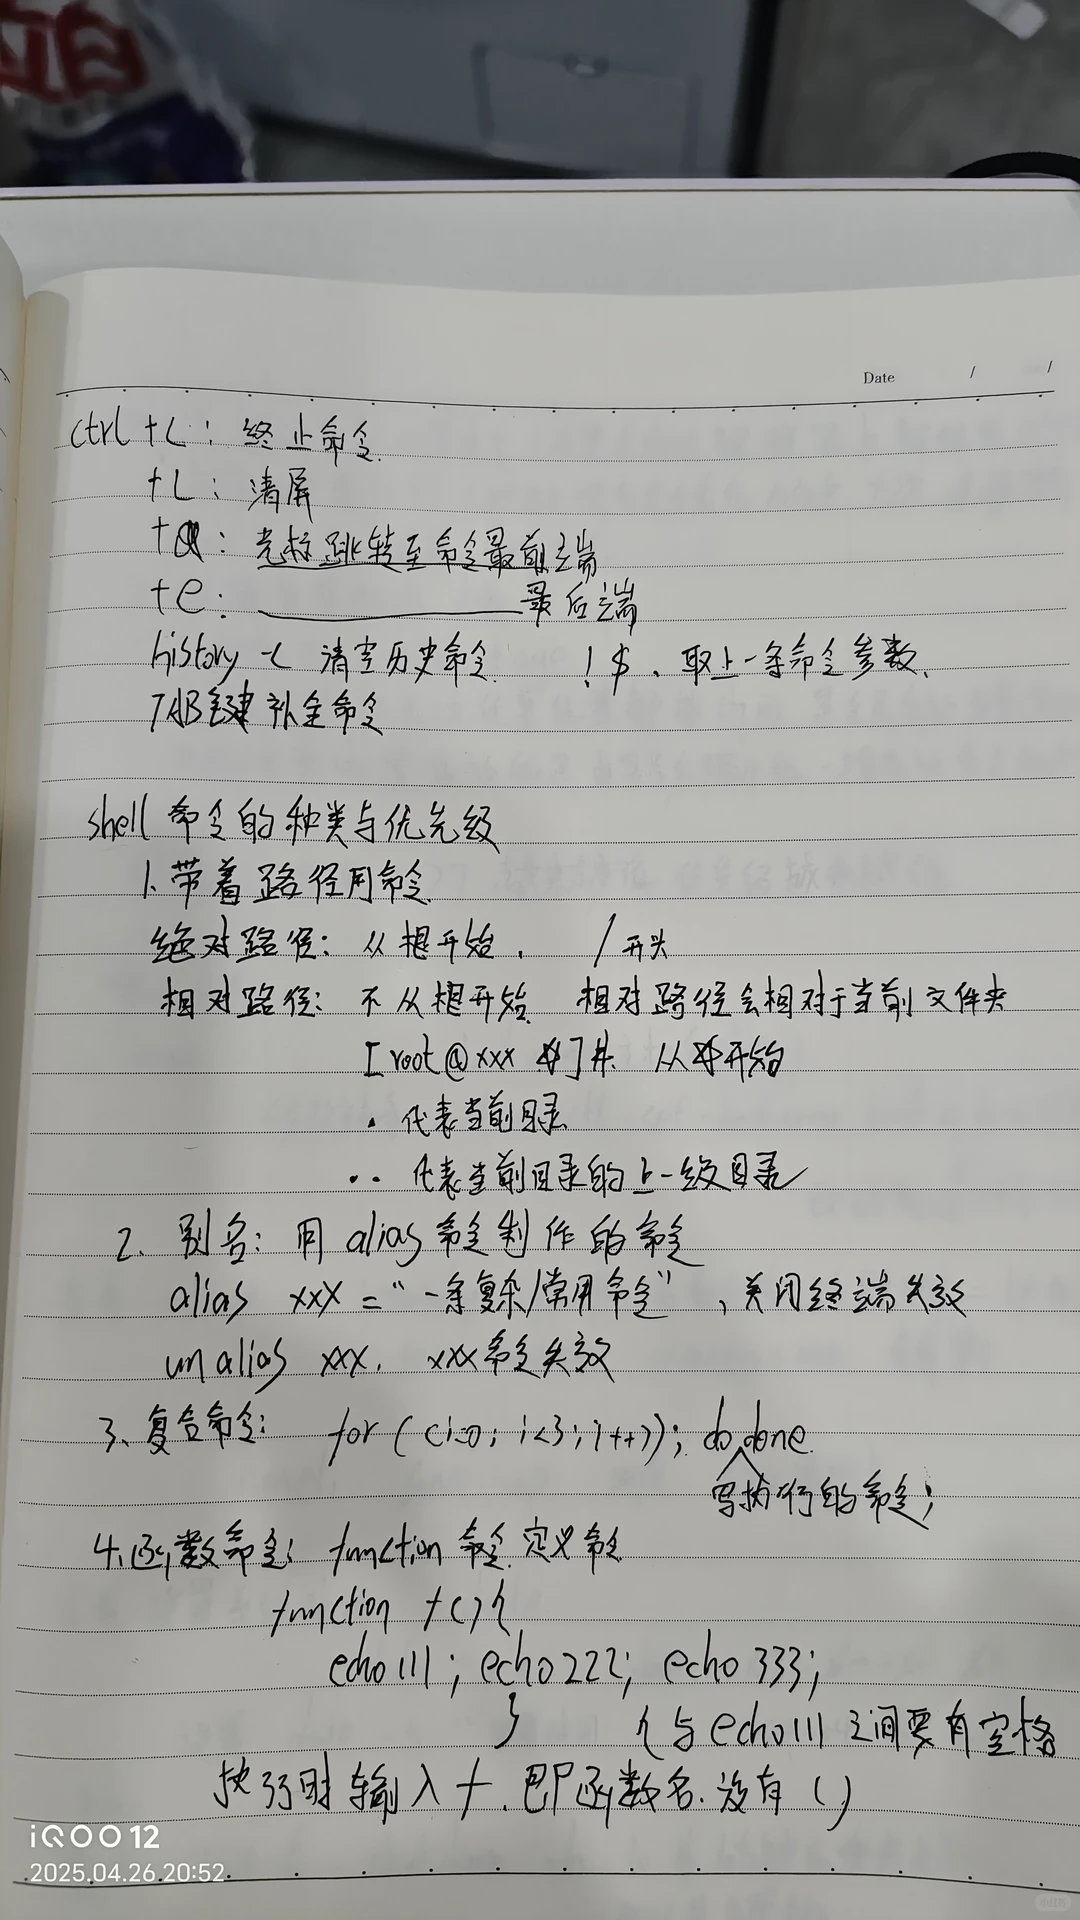 Date / /
ctrl +c：终止命令.
+L：清屏
+a：光标跳转至命令最前端
+e：________最后端
history -c 清空历史命令. !$、取上一条命令参数.
TAB键 补全命令
shell 命令的种类与优先级
1.带着路径用命令
绝对路径：从根开始. /开头
相对路径：不从根开始. 相对路径会相对于当前文件夹
[root@xxx ]#. 从 开始
. 代表当前目录
.. 代表当前目录的上一级目录
2. 别名：用 alias 命令制作的命令
alias xxx = “一条复杂/常用命令”，关闭终端失效
unalias xxx. xxx命令失效
3、复合命令： for ( (i=0; i<3; i++)); do done.
写执行的命令;
4.函数命令： function 命令.定义命令
function f(){
echo 111; echo 222; echo 333;
} {与echo 111 之间要有空格
执行时输入f.即函数名.没有()
iQOO 12
2025.04.26 20:52